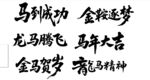 马到成功 金鞍逐梦
龙马腾飞 马年大吉
金马贺岁 龍马精神